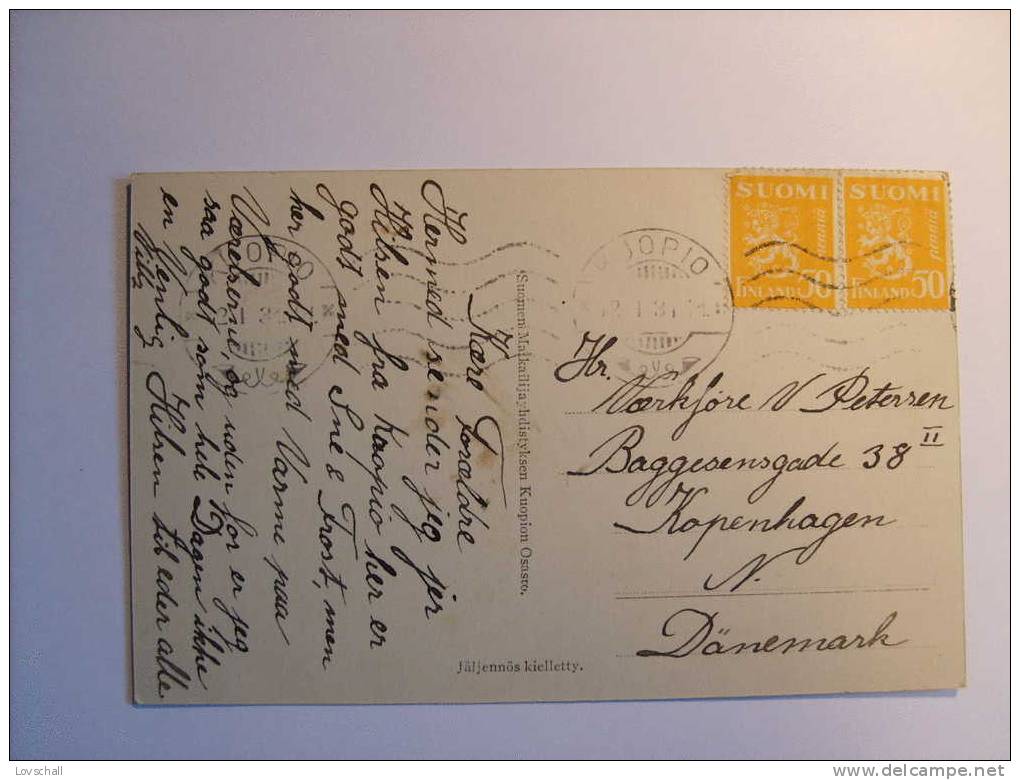 Kære Forældre
Hermed sender jeg jer
Hilsen fra Kuopio her er
godt med Sne & Frost, men
her godt med Varme paa
Værelserne, og uden for er jeg
saa godt som hele Dagen ikke
en Venlig Hilsen til eder alle
Suomen Matkailijayhdistyksen Kuopion Osasto.
Jäljennös kielletty.
KUOPIO
KUOPIO
SUOMI
markkaa
FINLAND 50
SUOMI
FINLAND 50
Hr.
Værkføre V Petersen
Baggesensgade 38 II
Kopenhagen
N.
Dänemark
Lovschall
delcampe.net